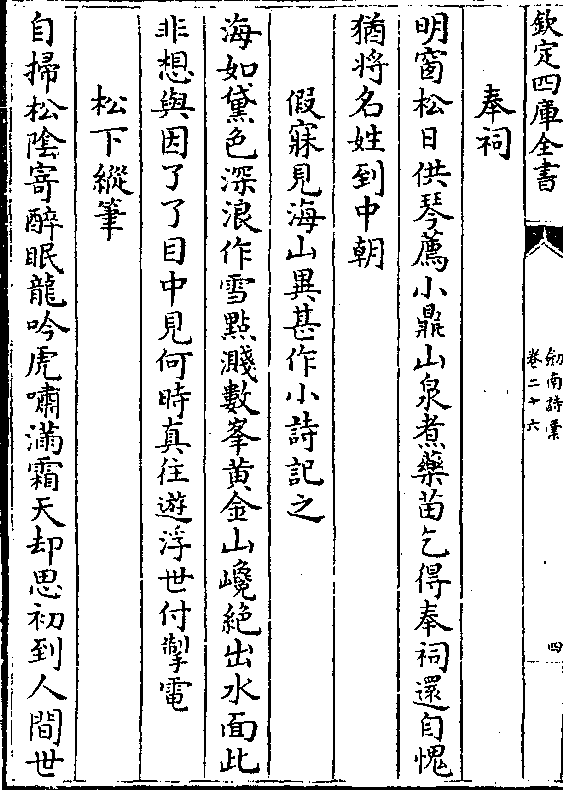 欽定四庫全書
劍南詩藁
卷二十六
四
奉祠
明窗松日供琴薦小鼎山泉煮藥苗乞得奉祠還自愧
猶將名姓到中朝
假寐見海山異甚作小詩記之
海如黛色深浪作雪點濺數峯黄金山巉絶出水面此
非想與因了了目中見何時真往遊浮世付掣電
松下縱筆
自掃松陰寄醉眠龍吟虎嘯滿霜天却思初到人間世